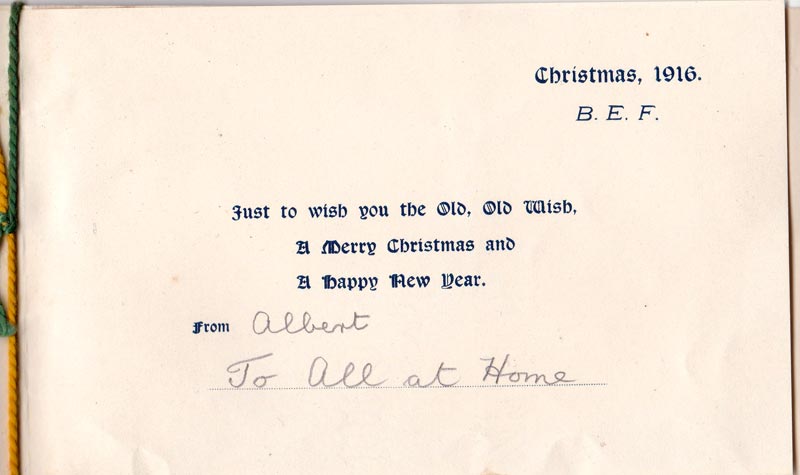 Christmas, 1916.
B. E. F.
Just to wish you the Old, Old Wish,
A Merry Christmas and
A Happy New Year.
From Albert
To All at Home